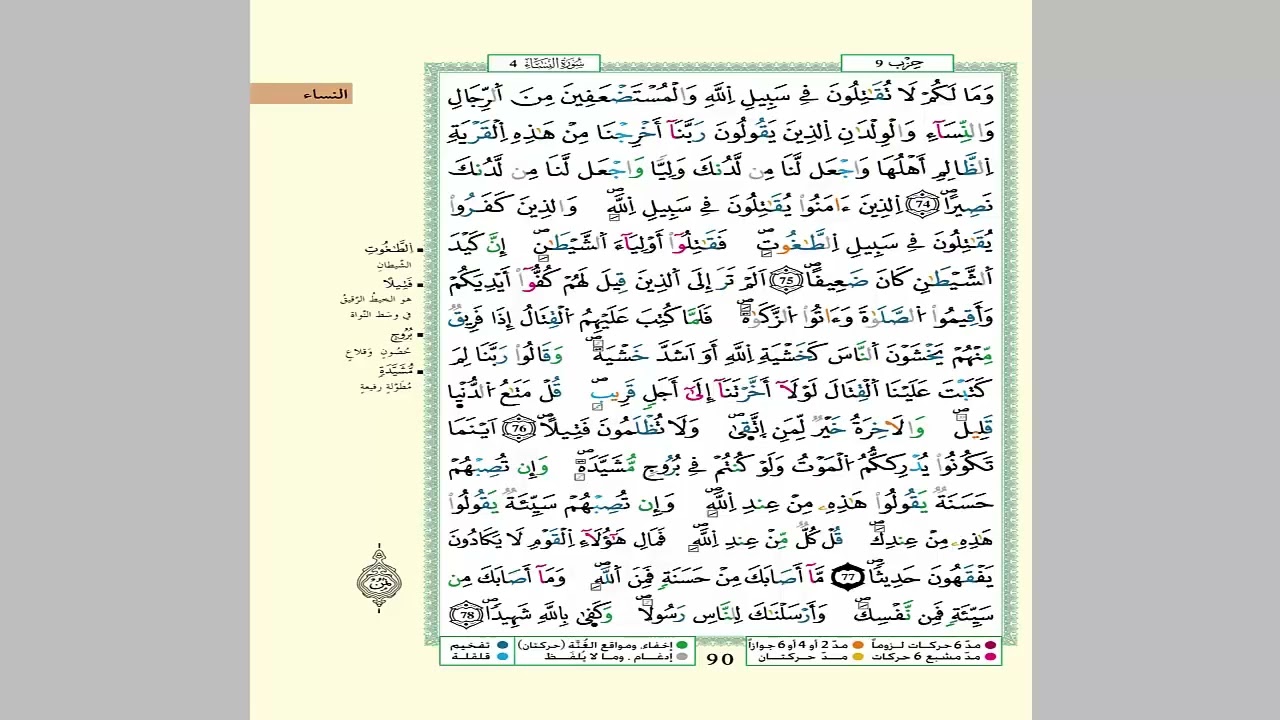 سُورَةُ النِّسَاءِ 4
حِزْب 9
النساء
وَمَا لَكُمْ لَا تُقَٰتِلُونَ فِے سَبِيلِ اِ۬للَّهِ وَالْمُسْتَضْعَفِينَ مِنَ اَ۬لرِّجَالِ
وَالنِّسَآءِ وَالْوِلْدَٰنِ اِ۬لذِينَ يَقُولُونَ رَبَّنَآ أَخْرِجْنَا مِنْ هَٰذِهِ اِ۬لْقَرْيَةِ
اِ۬لظَّالِمِ أَهْلُهَا وَاجْعَل لَّنَا مِن لَّدُنكَ وَلِيّٗا وَاجْعَل لَّنَا مِن لَّدُنكَ
نَصِيراًۖ 74 اِ۬لذِينَ ءَامَنُواْ يُقَٰتِلُونَ فِے سَبِيلِ اِ۬للَّهِۖ وَالذِينَ كَفَرُواْ
يُقَٰتِلُونَ فِے سَبِيلِ اِ۬لطَّٰغُوتِۖ فَقَٰتِلُوٓاْ أَوْلِيَآءَ اَ۬لشَّيْطَٰنِۖ إِنَّ كَيْدَ
اَ۬لشَّيْطَٰنِ كَانَ ضَعِيفاًۖ 75 اَلَمْ تَرَ إِلَى اَ۬لذِينَ قِيلَ لَهُمْ كُفُّوٓاْ أَيْدِيَكُمْ
وَأَقِيمُواْ اُ۬لصَّلَوٰةَ وَءَاتُواْ اُ۬لزَّكَوٰةَۖ فَلَمَّا كُتِبَ عَلَيْهِمُ اُ۬لْقِتَالُ إِذَا فَرِيقٞ
مِّنْهُمْ يَخْشَوْنَ اَ۬لنَّاسَ كَخَشْيَةِ اِ۬للَّهِ أَوَ اَشَدَّ خَشْيَةٗۖ وَقَالُواْ رَبَّنَا لِمَ
كَتَبْتَ عَلَيْنَا اَ۬لْقِتَالَ لَوْلَآ أَخَّرْتَنَآ إِلَىٰٓ أَجَلٖ قَرِيبٖۖ قُلْ مَتَٰعُ اُ۬لدُّنْيَا
قَلِيلٞۖ وَالَاخِرَةُ خَيْرٞ لِّمَنِ اِ۪تَّقَىٰۖ وَلَا تُظْلَمُونَ فَتِيلاًۖ 76 اَيْنَمَا
تَكُونُواْ يُدْرِككُّمُ اُ۬لْمَوْتُ وَلَوْ كُنتُمْ فِے بُرُوجٖ مُّشَيَّدَةٖۖ وَإِن تُصِبْهُمْ
حَسَنَةٞ يَقُولُواْ هَٰذِهِۦ مِنْ عِندِ اِ۬للَّهِۖ وَإِن تُصِبْهُمْ سَيِّئَةٞ يَقُولُواْ
هَٰذِهِۦ مِنْ عِندِكَۖ قُلْ كُلّٞ مِّنْ عِندِ اِ۬للَّهِۖ فَمَالِ هَٰٓؤُلَآءِ اِ۬لْقَوْمِ لَا يَكَادُونَ
يَفْقَهُونَ حَدِيثاًۖ 77 مَّآ أَصَابَكَ مِنْ حَسَنَةٖ فَمِنَ اَ۬للَّهِۖ وَمَآ أَصَابَكَ مِن
سَيِّئَةٖ فَمِن نَّفْسِكَۖ وَأَرْسَلْنَٰكَ لِلنَّاسِ رَسُولاٗۖ وَكَفَىٰ بِاللَّهِ شَهِيداٗۖ 78
الطَّٰغُوتِ
الشّيطانِ
فَتِيلًا
هو الخيطُ الرّقيقُ
في وسَط النّواة
بُرُوجٍ
حُصُونٍ وَقِلاعٍ
مُّشَيَّدَةٍ
مُطَوّلةٍ رفيعةٍ
مدّ 6 حركات لـزوماً
مدّ 2 أو 4 أو 6 جوازاً
مدّ مشبع 6 حركات
مــدّ حركـتــان
90
إخفاء، ومواقع الغُنَّة (حركتان)
تفخيم
إدغـام، ومـا لا يُلفـظ
قلقلة